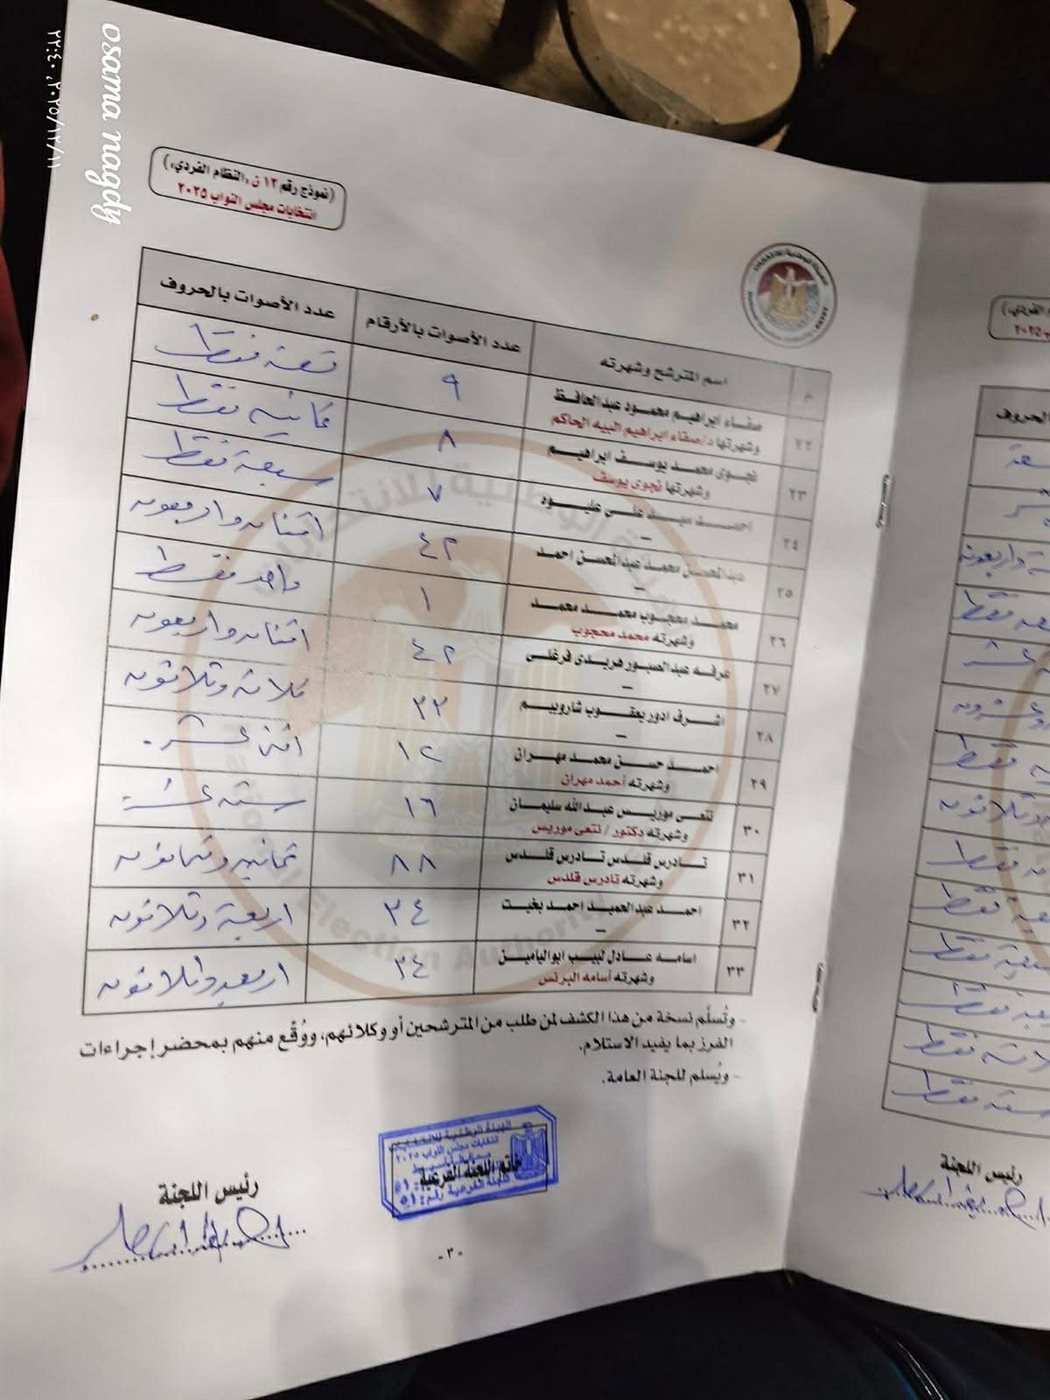 osama nagdy
٢٠٢٥/١٢/١١ ٢٢:٤٠
(نموذج رقم ١٢ ن «النظام الفردي»)
انتخابات مجلس النواب ٢٠٢٥
م اسم المترشح وشهرته عدد الأصوات بالأرقام عدد الأصوات بالحروف
٢٢ صفاء ابراهيم محمود عبدالحافظ ٩ تسعة فقط
وشهرتها د/صفاء ابراهيم البيه الحاكم
٢٣ نجوى محمد يوسف ابراهيم ٨ ثمانية فقط
وشهرتها نجوى يوسف
٢٤ احمد سيد على عليود ٧ سبعة فقط
–
٢٥ عبدالمحسن محمد عبدالمحسن احمد ٤٢ اثنان واربعون
–
٢٦ محمد محجوب محمد محمد ١ واحد فقط
وشهرته محمد محجوب
٢٧ عرفه عبدالصبور هريدى فرغلى ٤٢ اثنان واربعون
–
٢٨ اشرف ادور يعقوب شاروبيم ٣٣ ثلاثة وثلاثون
–
٢٩ احمد حسن محمد مهران ١٢ اثنى عشر
وشهرته أحمد مهران
٣٠ نتعى موريس عبدالله سليمان ١٦ ستة عشر
وشهرته دكتور / نتعى موريس
٣١ تادرس قلدس تادرس قلدس ٨٨ ثمانية وثمانون
وشهرته تادرس قلدس
٣٢ احمد عبدالحميد احمد بخيت ٣٤ اربعة وثلاثون
–
٣٣ اسامه عادل لبيب ابواليامين ٣٤ اربعة وثلاثون
وشهرته أسامه البرنس
- وتُسلَّم نسخة من هذا الكشف لمن طلب من المترشحين أو وكلائهم، ووُقِّع منهم بمحضر إجراءات
الفرز بما يفيد الاستلام.
- ويُسلم للجنة العامة.
الهيئة الوطنية للانتخابات
انتخابات مجلس النواب ٢٠٢٥
خاتم اللجنة الفرعية
رئيس اللجنة
- ٣٠ -
الحروف
فقط
رئيس اللجنة